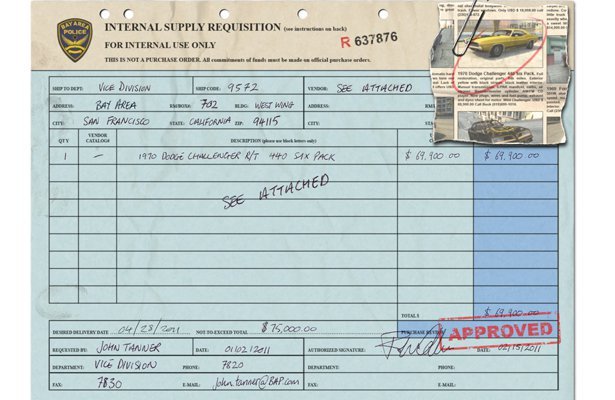 BAY AREA
POLICE
INTERNAL SUPPLY REQUISITION (see instructions on back)
FOR INTERNAL USE ONLY
THIS IS NOT A PURCHASE ORDER. All commitments of funds must be made on official purchase orders.
R 637876
1970 Dodge Challenger 440 Six Pack.
SHIP TO DEPT: VICE DIVISION SHIP CODE: 9572 VENDOR: SEE ATTACHED
ADDRESS: BAY AREA RM/BOX#: 702 BLDG: WEST WING ADDRESS:
CITY: SAN FRANCISCO STATE: CALIFORNIA ZIP: 94115 CITY:
QTY VENDOR CATALOG# DESCRIPTION (please use block letters only)
1 — 1970 DODGE CHALLENGER R/T 440 SIX PACK $ 69,900.00 $ 69,900.00
SEE ATTACHED
TOTALS $ 69,900.00
DESIRED DELIVERY DATE 04/28/2011 NOT-TO-EXCEED TOTAL $75,000.00 PURCHASE
APPROVED
REQUESTED BY: JOHN TANNER DATE: 01/02/2011 AUTHORIZED SIGNATURE: DATE: 02/15/2011
DEPARTMENT: VICE DIVISION PHONE: 7820 DEPARTMENT: PHONE:
FAX: 7830 E-MAIL: john.tanner@BAP.com FAX: E-MAIL: